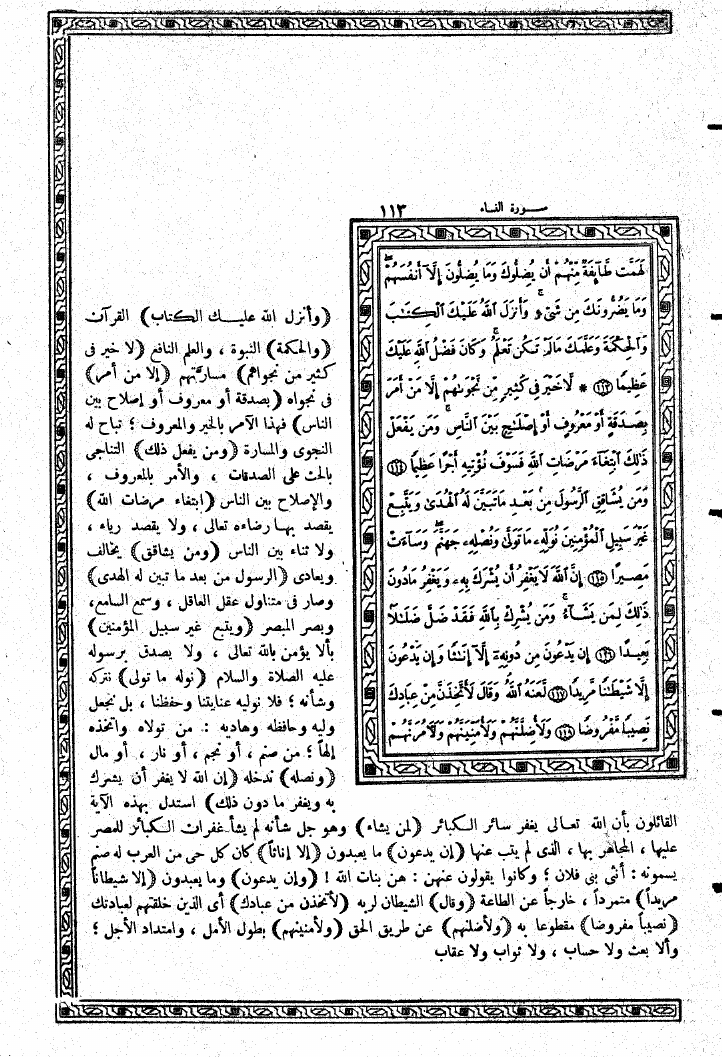 سورة النساء ١١٣
لَهَمَّت طَّآئِفَةٌ مِّنْهُمْ أَن يُضِلُّوكَ وَمَا يُضِلُّونَ إِلَّآ أَنفُسَهُمْ ۖ
وَمَا يَضُرُّونَكَ مِن شَىْءٍ ۚ وَأَنزَلَ ٱللَّهُ عَلَيْكَ ٱلْكِتَـٰبَ
وَٱلْحِكْمَةَ وَعَلَّمَكَ مَا لَمْ تَكُن تَعْلَمُ ۚ وَكَانَ فَضْلُ ٱللَّهِ عَلَيْكَ
عَظِيمًا ﴿١١٣﴾ * لَّا خَيْرَ فِى كَثِيرٍ مِّن نَّجْوَىٰهُمْ إِلَّا مَنْ أَمَرَ
بِصَدَقَةٍ أَوْ مَعْرُوفٍ أَوْ إِصْلَـٰحٍۭ بَيْنَ ٱلنَّاسِ ۚ وَمَن يَفْعَلْ
ذَٰلِكَ ٱبْتِغَآءَ مَرْضَاتِ ٱللَّهِ فَسَوْفَ نُؤْتِيهِ أَجْرًا عَظِيمًا ﴿١١٤﴾
وَمَن يُشَاقِقِ ٱلرَّسُولَ مِنۢ بَعْدِ مَا تَبَيَّنَ لَهُ ٱلْهُدَىٰ وَيَتَّبِعْ
غَيْرَ سَبِيلِ ٱلْمُؤْمِنِينَ نُوَلِّهِۦ مَا تَوَلَّىٰ وَنُصْلِهِۦ جَهَنَّمَ ۖ وَسَآءَتْ
مَصِيرًا ﴿١١٥﴾ إِنَّ ٱللَّهَ لَا يَغْفِرُ أَن يُشْرَكَ بِهِۦ وَيَغْفِرُ مَا دُونَ
ذَٰلِكَ لِمَن يَشَآءُ ۚ وَمَن يُشْرِكْ بِٱللَّهِ فَقَدْ ضَلَّ ضَلَـٰلًۢا
بَعِيدًا ﴿١١٦﴾ إِن يَدْعُونَ مِن دُونِهِۦٓ إِلَّآ إِنَـٰثًا وَإِن يَدْعُونَ
إِلَّا شَيْطَـٰنًا مَّرِيدًا ﴿١١٧﴾ لَّعَنَهُ ٱللَّهُ ۘ وَقَالَ لَأَتَّخِذَنَّ مِنْ عِبَادِكَ
نَصِيبًا مَّفْرُوضًا ﴿١١٨﴾ وَلَأُضِلَّنَّهُمْ وَلَأُمَنِّيَنَّهُمْ وَلَـَٔامُرَنَّهُمْ
(وأنزل الله عليك الكتاب) القرآن
(والحكمة) النبوة ، والعلم النافع (لا خير فى
كثير من نجواهم) مسارّتهم (إلا من أمر)
فى نجواه (بصدقة أو معروف أو إصلاح بين
الناس) فهذا الآمر بالخير والمعروف ؛ تباح له
النجوى والمسارة (ومن يفعل ذلك) التناجى
بالحث على الصدقات ، والأمر بالمعروف ،
والإصلاح بين الناس (ابتغاء مرضات الله)
يقصد بها رضاءه تعالى ، ولا يقصد رياء ،
ولا ثناء بين الناس (ومن يشاقق) يخالف
ويعادى (الرسول من بعد ما تبين له الهدى)
وصار فى متناول عقل العاقل ، وسمع السامع،
وبصر المبصر (ويتبع غير سبيل المؤمنين)
بألا يؤمن بالله تعالى ، ولا يصدق برسوله
عليه الصلاة والسلام (نوله ما تولى) نتركه
وشأنه ؛ فلا نوليه عنايتنا وحفظنا ، بل نجعل
وليه وحافظه وهاديه : من تولاه واتخذه
إلهاً ؛ من صنم ، أو نجم ، أو نار ، أو مال
(ونصله) ندخله (إن الله لا يغفر أن يشرك
به ويغفر ما دون ذلك) استدل بهذه الآية
القائلون بأن الله تعالى يغفر سائر الكبائر (لمن يشاء) وهو جل شأنه لم يشأ غفران الكبائر للمصر
عليها ، المجاهر بها ، الذى لم يتب عنها (إن يدعون) ما يعبدون (إلا إناثاً) كان كل حى من العرب له صنم
يسمونه : أنثى بنى فلان ؛ وكانوا يقولون عنهن : هن بنات الله ! (وإن يدعون) وما يعبدون (إلا شيطاناً
مريداً) متمرداً ، خارجاً عن الطاعة (وقال) الشيطان لربه (لأتخذن من عبادك) أى الذين خلقتهم لعبادتك
(نصيباً مفروضا) مقطوعا به (ولأضلنهم) عن طريق الحق (ولأمنينهم) بطول الأمل ، وامتداد الأجل ؛
وألا بعث ولا حساب ، ولا ثواب ولا عقاب